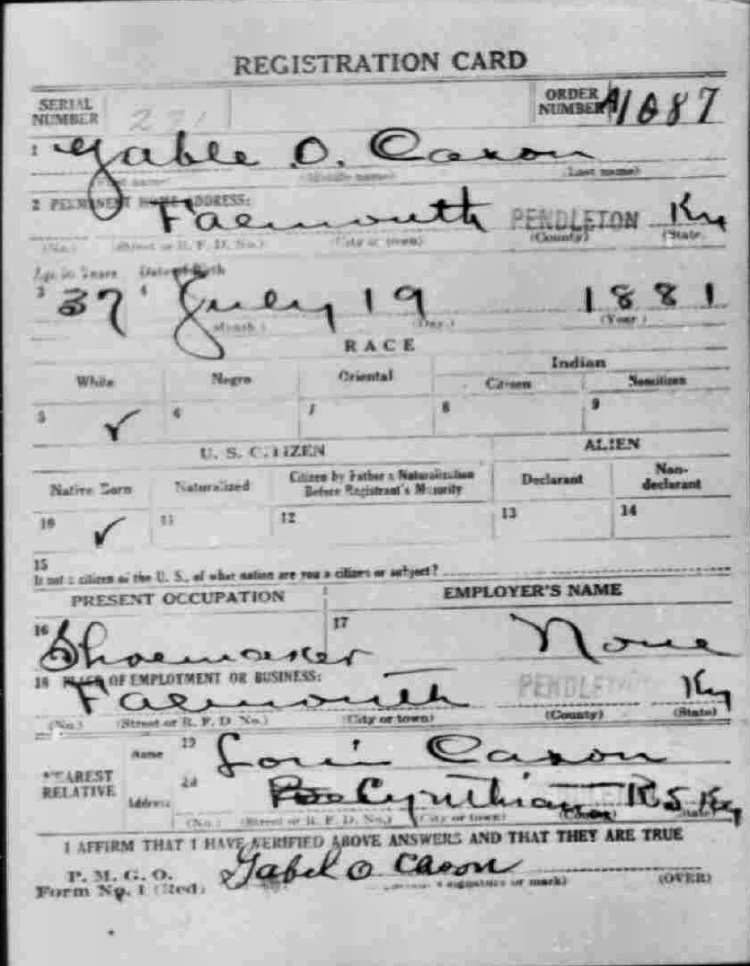 REGISTRATION CARD
SERIAL NUMBER 221 ORDER NUMBER A1087
1 Gable O. Caxon
(Middle name) (Last name)
2 PERMANENT HOME ADDRESS: Falmouth PENDLETON Ky
(No.) (Street or R. F. D. No.) (City or town) (County) (State)
Age in Years Date of Birth
3 37 4 July 19 1881
(Month.) (Day.) (Year.)
RACE
White Negro Oriental Indian
Citizen Noncitizen
5 ✓ 6 7 8 9
U. S. CITIZEN ALIEN
Native Born Naturalized Citizen by Father's Naturalization Before Registrant's Majority Declarant Non-declarant
10 ✓ 11 12 13 14
15
If not a citizen of the U. S., of what nation are you a citizen or subject?
PRESENT OCCUPATION EMPLOYER'S NAME
16 Shoemaker 17 None
18 PLACE OF EMPLOYMENT OR BUSINESS:
Falmouth PENDLETON Ky
(No.) (Street or R. F. D. No.) (City or town) (County) (State)
NEAREST RELATIVE
Name 19 Caxon
Address 20 Cynthiana R5 Ky
(No.) (Street or R. F. D. No.) (City or town) (County) (State)
I AFFIRM THAT I HAVE VERIFIED ABOVE ANSWERS AND THAT THEY ARE TRUE
P. M. G. O.
Form No. 1 (Red) Gabel O Cason
(Registrant's signature or mark) (OVER)